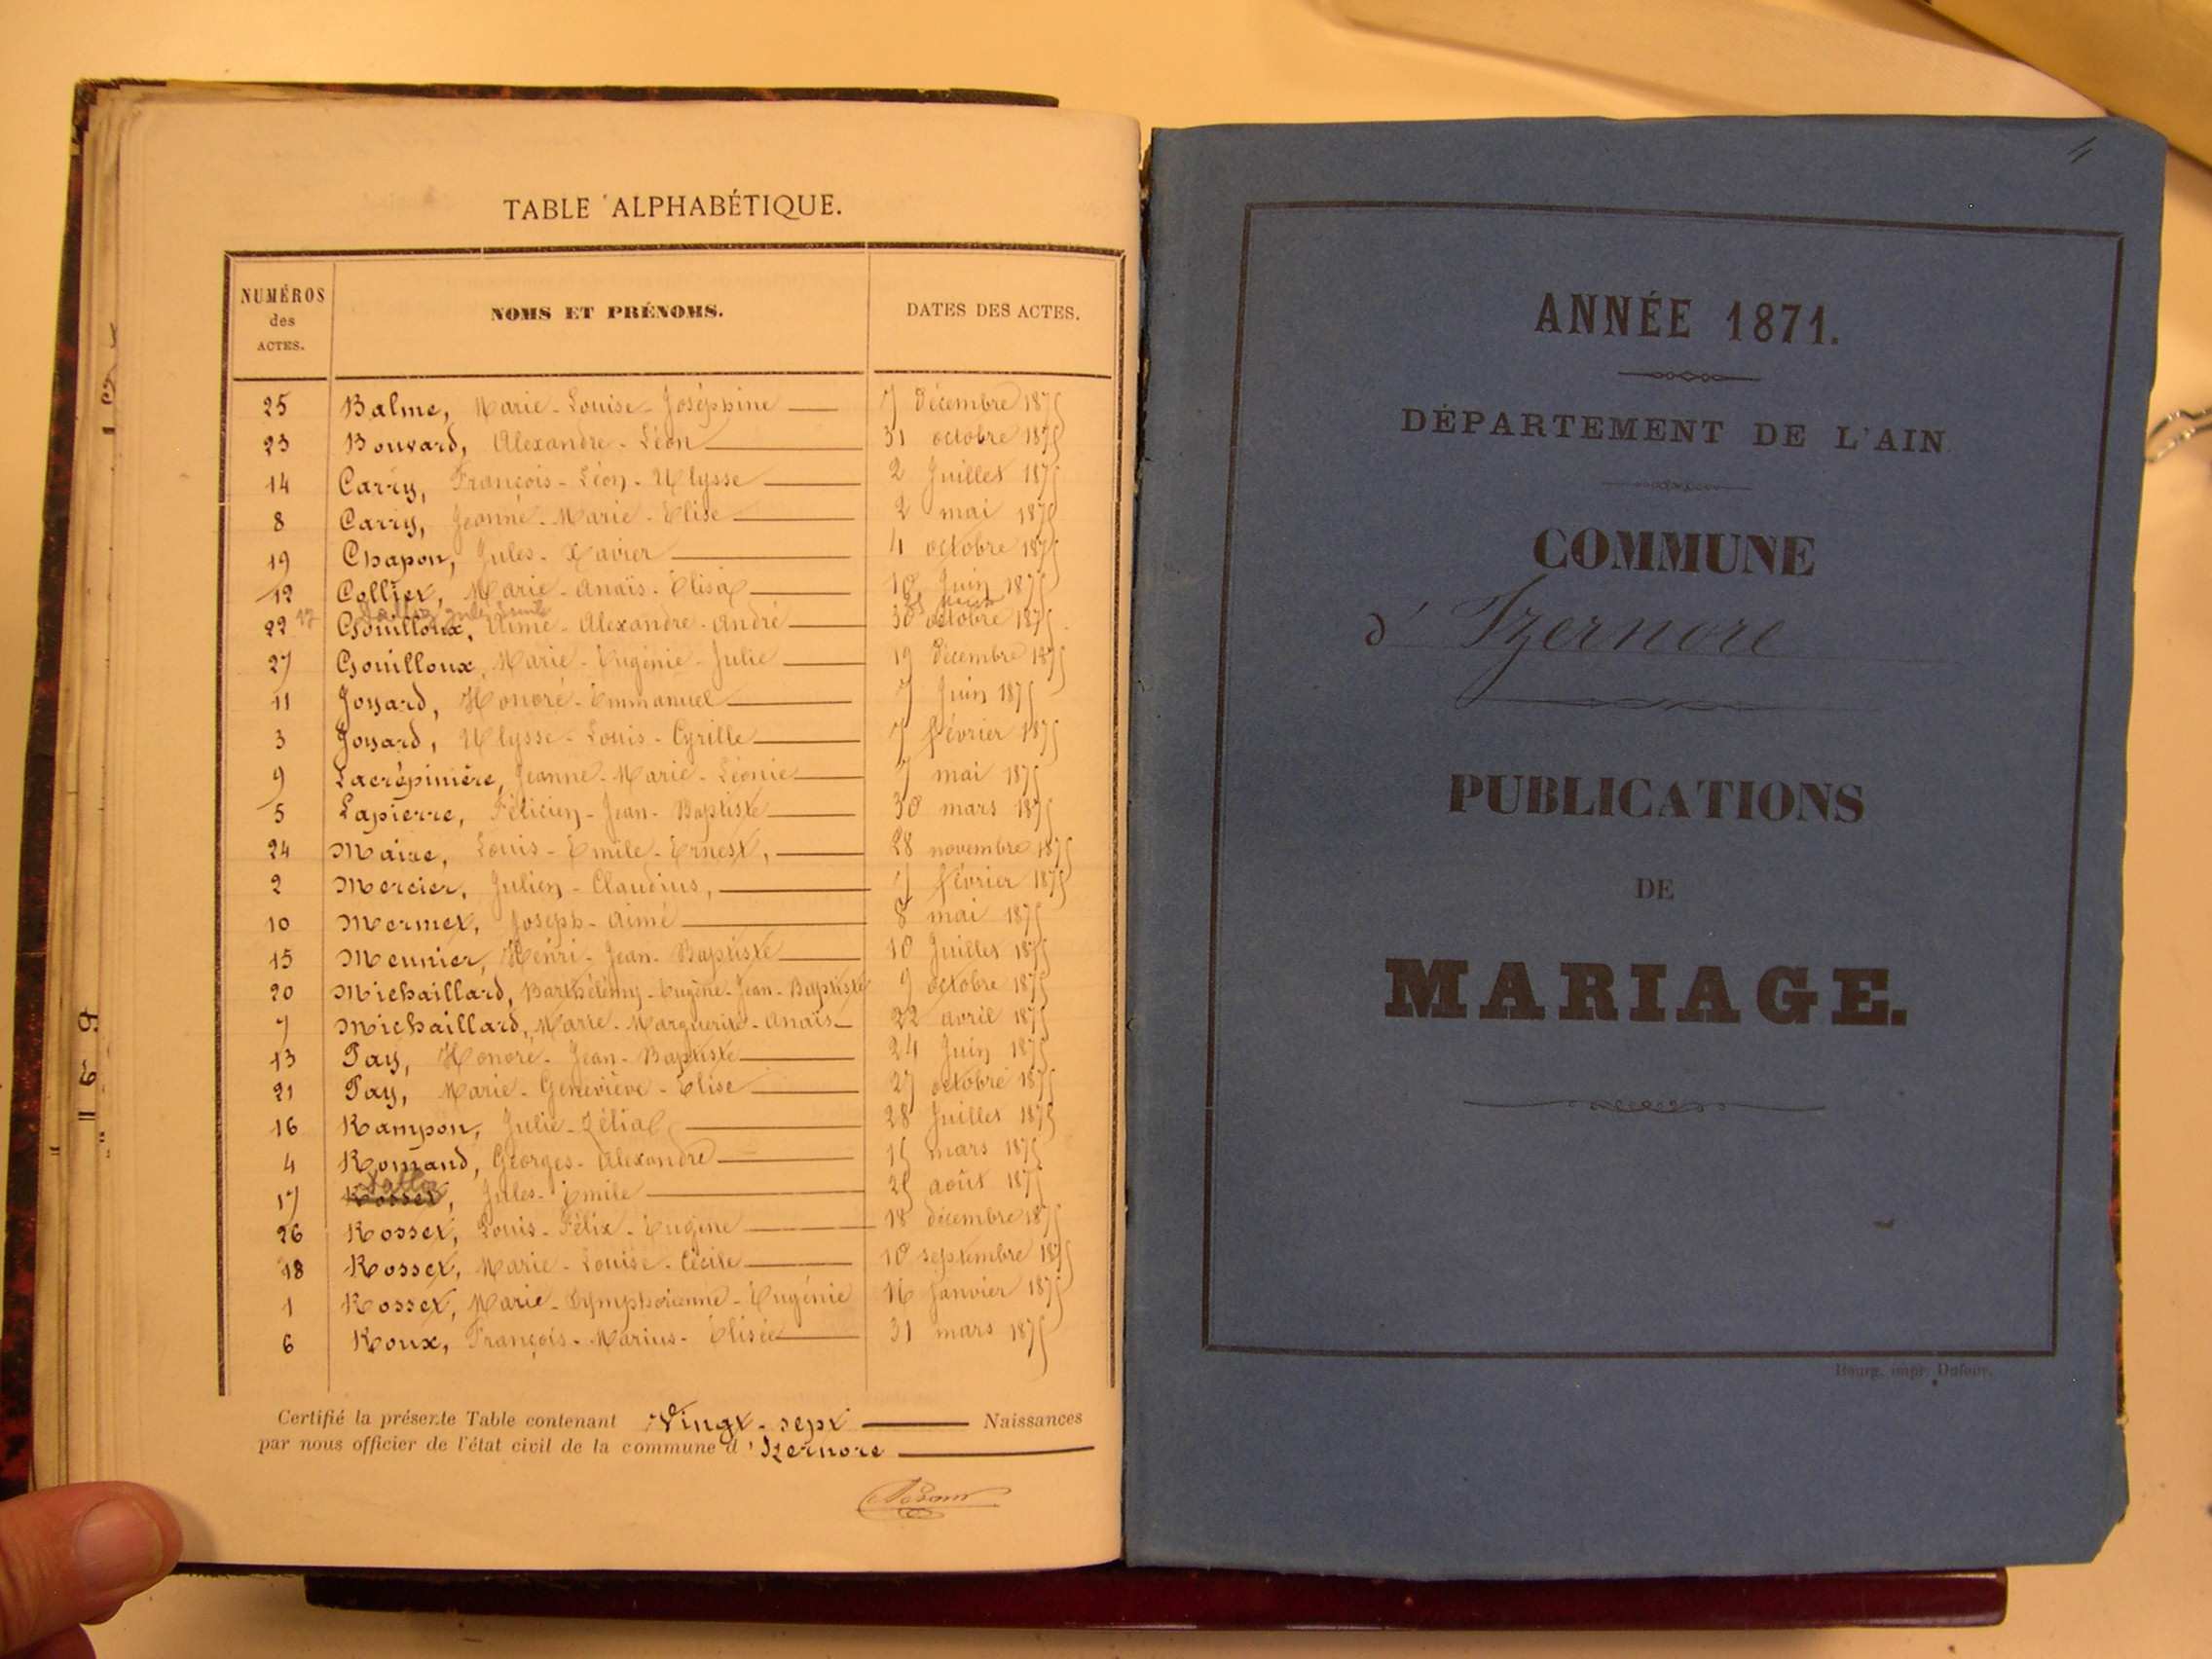 TABLE ALPHABÉTIQUE.
NUMÉROS des ACTES. NOMS ET PRÉNOMS. DATES DES ACTES.
25 Balme, Marie-Louise-Joséphine 7 décembre 1875
23 Bouvard, Alexandre-Léon 31 octobre 1875
14 Carry, François-Léon-Ulysse 2 Juillet 1875
8 Carry, Jeanne-Marie-Elise 2 mai 1875
19 Chapon, Jules-Xavier 4 octobre 1875
12 Collier, Marie-Anaïs-Elisa 10 Juin 1875
17
22 Gouilloux, Aimé-Alexandre-André 30 octobre 1875
27 Gouilloux, Marie-Eugénie-Julie 19 décembre 1875
11 Joyard, Honoré-Emmanuel 7 Juin 1875
3 Joyard, Ulysse-Louis-Cyrille 7 février 1875
9 Lacrépinière, Jeanne-Marie-Léonie 7 mai 1875
5 Lapierre, Félicien-Jean-Baptiste 30 mars 1875
24 Maire, Louis-Emile-Ernest, 28 novembre 1875
2 Mercier, Julien-Claudius, février 1875
10 Mermet, Joseph-Aimé 8 mai 1875
15 Meunier, Henri-Jean-Baptiste 10 Juillet 1875
20 Michaillard, Barthélemy-Eugène-Jean-Baptiste 9 octobre 1875
7 Michaillard, Marie-Marguerite-Anaïs 22 avril 1875
13 Pay, Honoré-Jean-Baptiste 24 Juin 1875
21 Pay, Marie-Geneviève-Elise 27 octobre 1875
16 Rampon, Julie-Zélia 28 Juillet 1875
4 Romand, Georges-Alexandre 15 mars 1875
17 Rosset, Jules-Emile 25 août 1875
26 Rosset, Louis-Félix-Eugène 18 décembre 1875
18 Rosset, Marie-Louise-Cécile 10 septembre 1875
1 Rosset, Marie-Symphorienne-Eugénie 16 Janvier 1875
6 Roux, François-Marius-Elisée 31 mars 1875
Certifié la présente Table contenant Vingt-sept Naissances
par nous officier de l'état civil de la commune d'Izernore
ANNÉE 1871.
DÉPARTEMENT DE L'AIN
COMMUNE
d'Izernore
PUBLICATIONS
DE
MARIAGE.
Bourg, impr. Dufour.